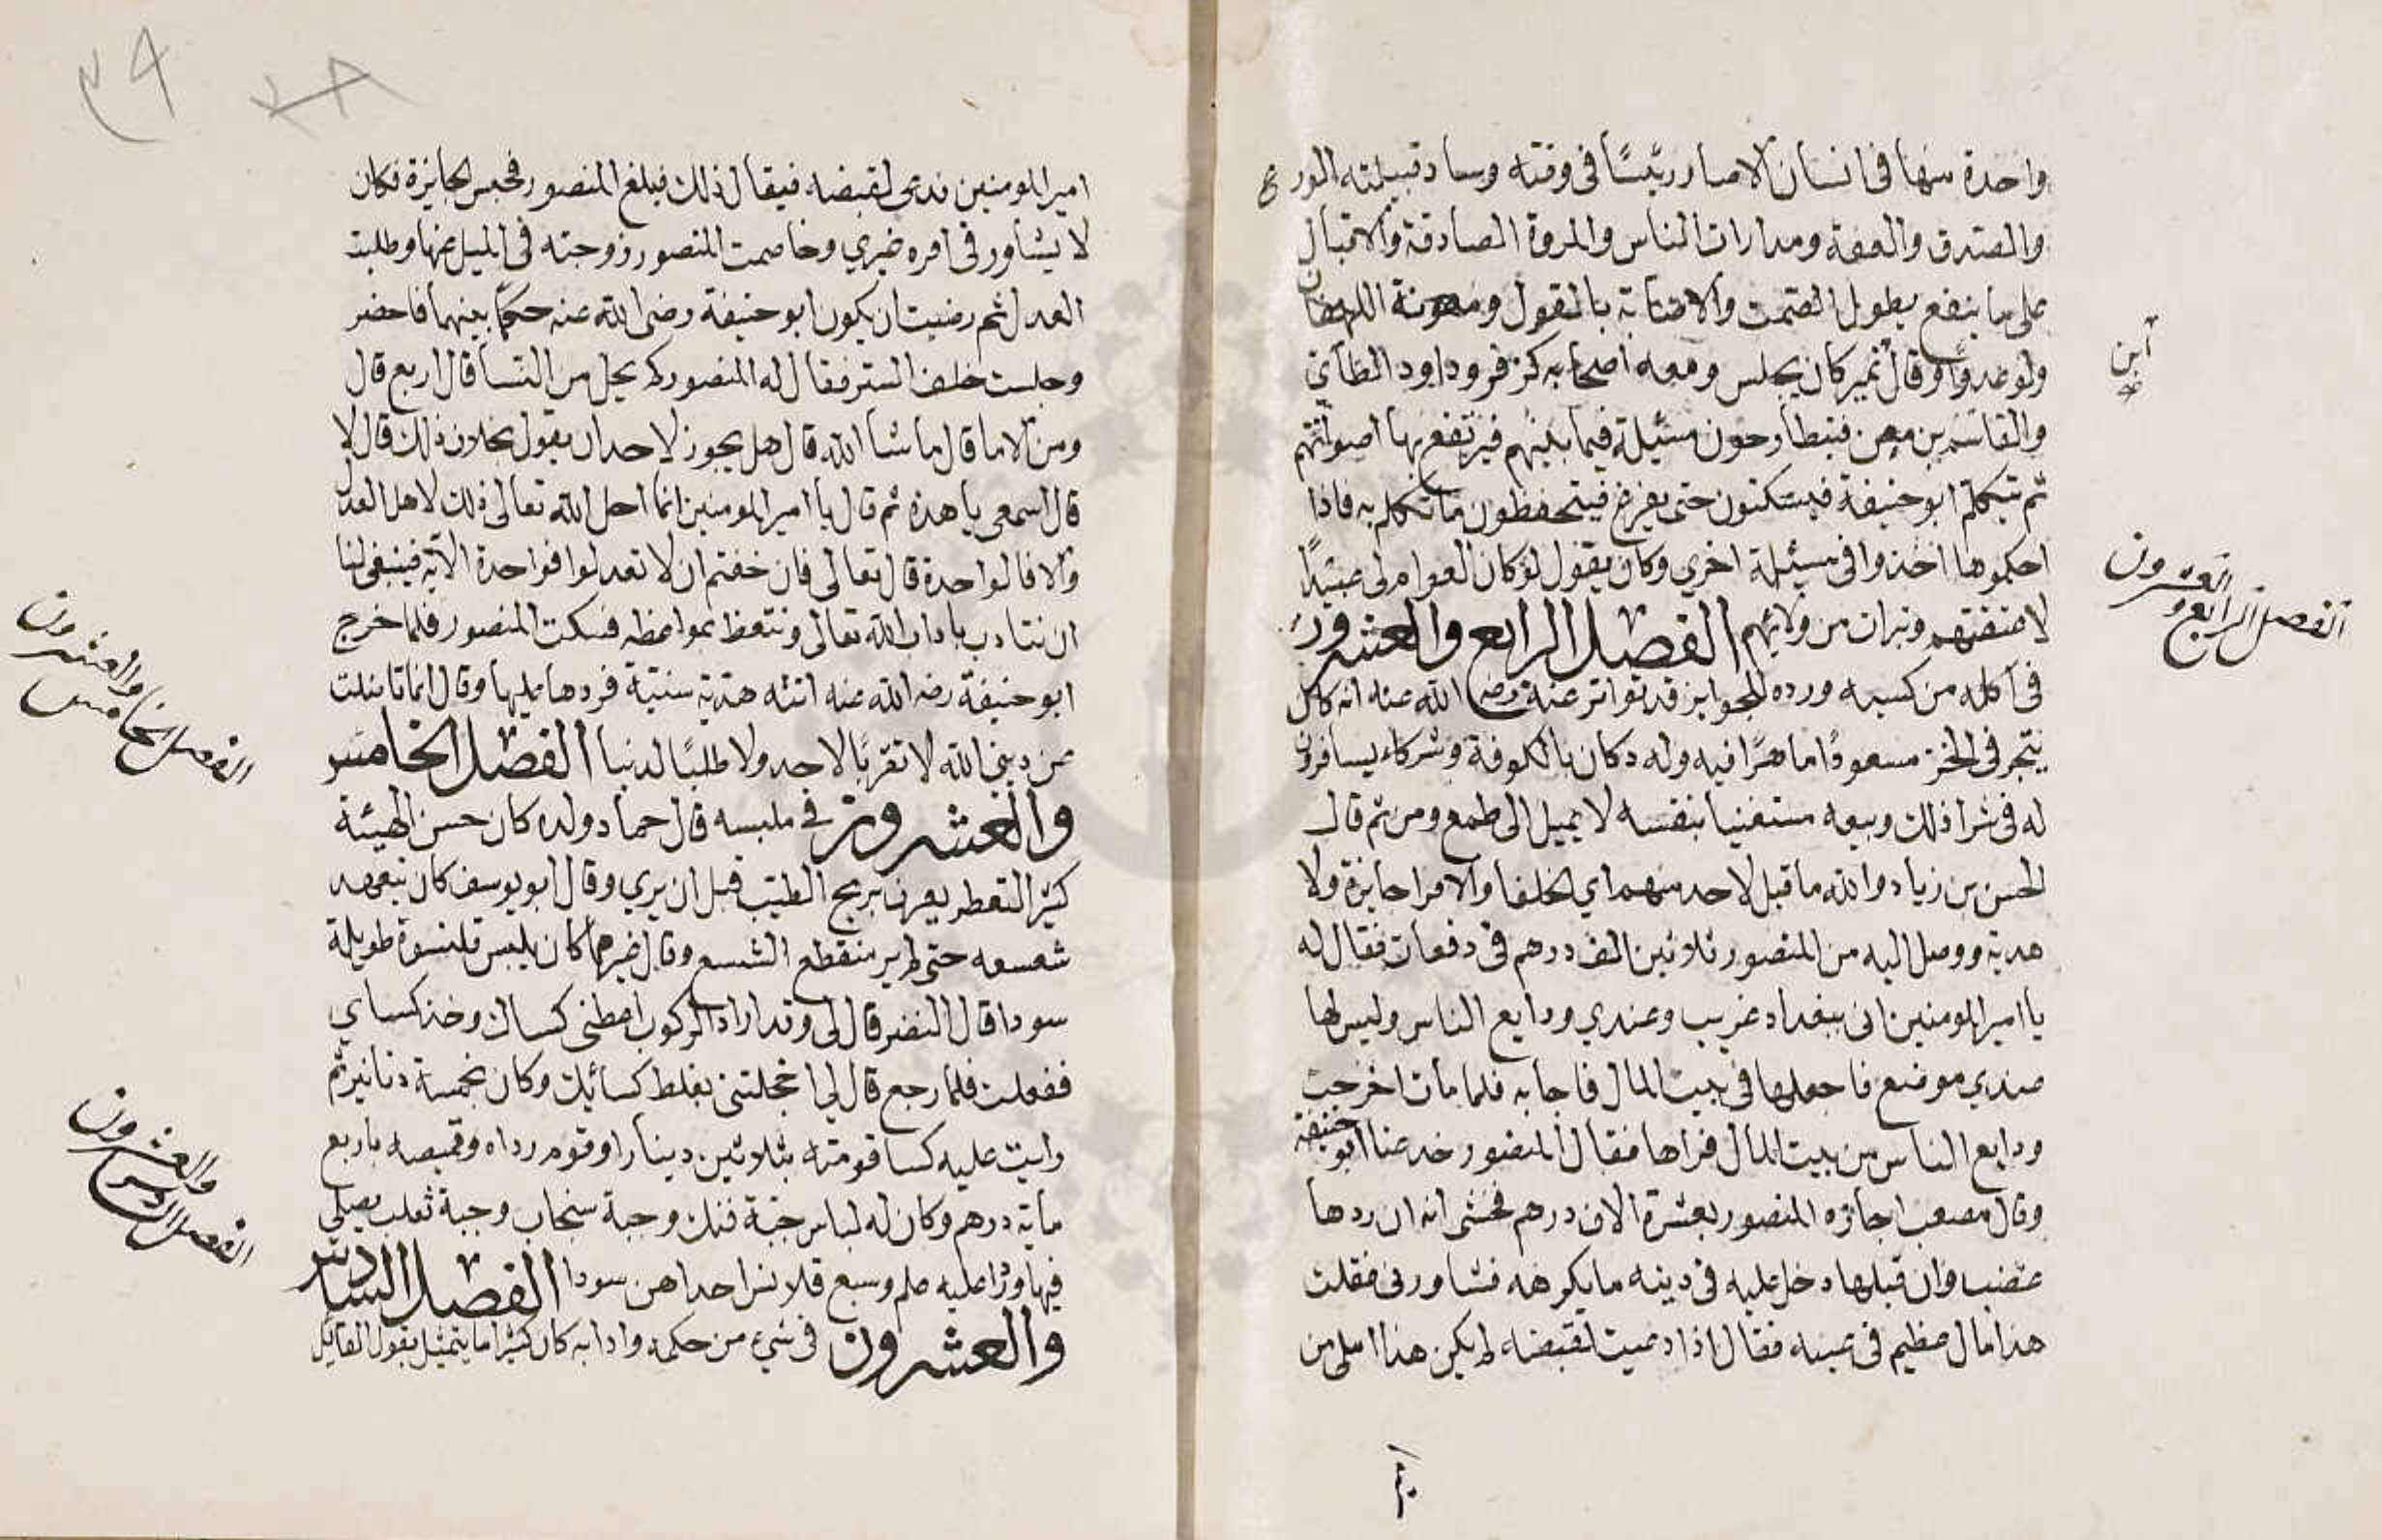 واحدة منها فى انسان الا صار رئيسًا فى وقته وساد قبيلته الورع
والصدق والعفة ومدارات الناس والمروة الصادقة والاقبال
على ما ينفع بطول الصمت والاصابة بالقول ومعونة اللهفان
ولو عدوا وقال نمير كان يجلس ومعه اصحابه كزفر وداود الطائى
ابن
والقاسم بن معن فيتطارحون مسئيلة فيما بينهم فيرتفع بها اصواتهم
ثم يتكلم ابو حنيفة فيسكتون حتى يفرغ فيتحفظون ما تكلم به فاذا
احكموها اخذوا فى مسئيلة اخري وكان يقول لو كان العوام لى عبيدًا
لاعتقتهم وتبرات من ولائهم الفصل الرابع والعشرون
الفصل الرابع والعشرون
فى اكله من كسبه ورده للجوايز قد تواتر عنه رضى الله عنه انه كان
يتجر فى الخز مسعودًا ماهرًا فيه وله دكان بالكوفة وشركاء يسافرون
له فى شرا ذلك وبيعه مستغنيا بنفسه لا يميل الى طمع ومن ثم قال
الحسن بن زياد والله ما قبل لاحد منهم اي الخلفا والامرا جايزة ولا
هدية ووصل اليه من المنصور ثلاثين الف درهم فى دفعات فقال له
يا امير المومنين انى ببغداد غريب وعندي ودايع الناس وليس لها
عندي موضع فاجعلها فى بيت المال فاجابه فلما مات اخرجت
ودايع الناس من بيت المال فراها فقال المنصور خدعنا ابو حنيفة
وقال مصعب اجازه المنصور بعشرة الاف درهم فخشى انه ان ردها
غضب وان قبلها دخل عليه فى دينه ما يكرهه فشاورنى فقلت
هذا مال عظيم فى عينه فقال اذا دعيت لقبضه لم يكن هذا املى من
٣٩
امير المومنين ندعى لقبضه فيقال ذلك فبلغ المنصور فحبس الجايزة فكان
لا يشاور فى امره غيري وخاصمت المنصور زوجته فى الميل عنها وطلبت
العدل ثم رضيت ان يكون ابو حنيفة رضى الله عنه حكمًا بينهما فاحضر
وجلست خلف الستر فقال له المنصور كم يحل من النسا قال اربع قال
ومن الاما قال ما شا الله قال هل يجوز لاحد ان يقول بخلاف ذلك قال لا
قال اسمعى يا هذه ثم قال يا امير المومنين انما احل الله تعالى ذلك لاهل العدل
والا فالواحدة قال تعالى فان خفتم ان لا تعدلوا فواحدة الآية فينبغى لنا
ان نتادب باداب الله تعالى ونتعظ بمواعظه فسكت المنصور فلما خرج
ابو حنيفة رضه الله عنه اتته هدية سنية فردها عليها وقال انما ناضلت
عن دين الله لا تقربًا لاحد ولا طلبًا لدنيا الفصل الخامس
الفصل الخامس والعشرون
والعشرون فى ملبسه قال حماد ولده كان حسن الهيئة
كثير التعطر يعرف بريح الطيب قبل ان يري وقال ابو يوسف كان يتعهد
شسعه حتى لم ير منقطع الشسع وقال غيرهما كان يلبس قلنسوة طويلة
سودا قال النضر قال لى وقد اراد الركوب اعطنى كساك وخذ كساي
ففعلت فلما رجع قال لي اخجلتنى بغلظ كسائيك وكان بخمسة دنانير ثم
رايت عليه كسا قومته بثلاثين دينارا وقوم رداه وقميصه باربع
ماية درهم وكان له لباس جبة فنك وجبة سنجاب وجبة ثعلب يصلى
فيها وبردا عليه علم وسبع قلانس احداهن سودا الفصل السادس
الفصل السادس والعشرون
والعشرون فى شىء من حكمه وادابه كان كثيرا ما يتمثل بقول القائيل